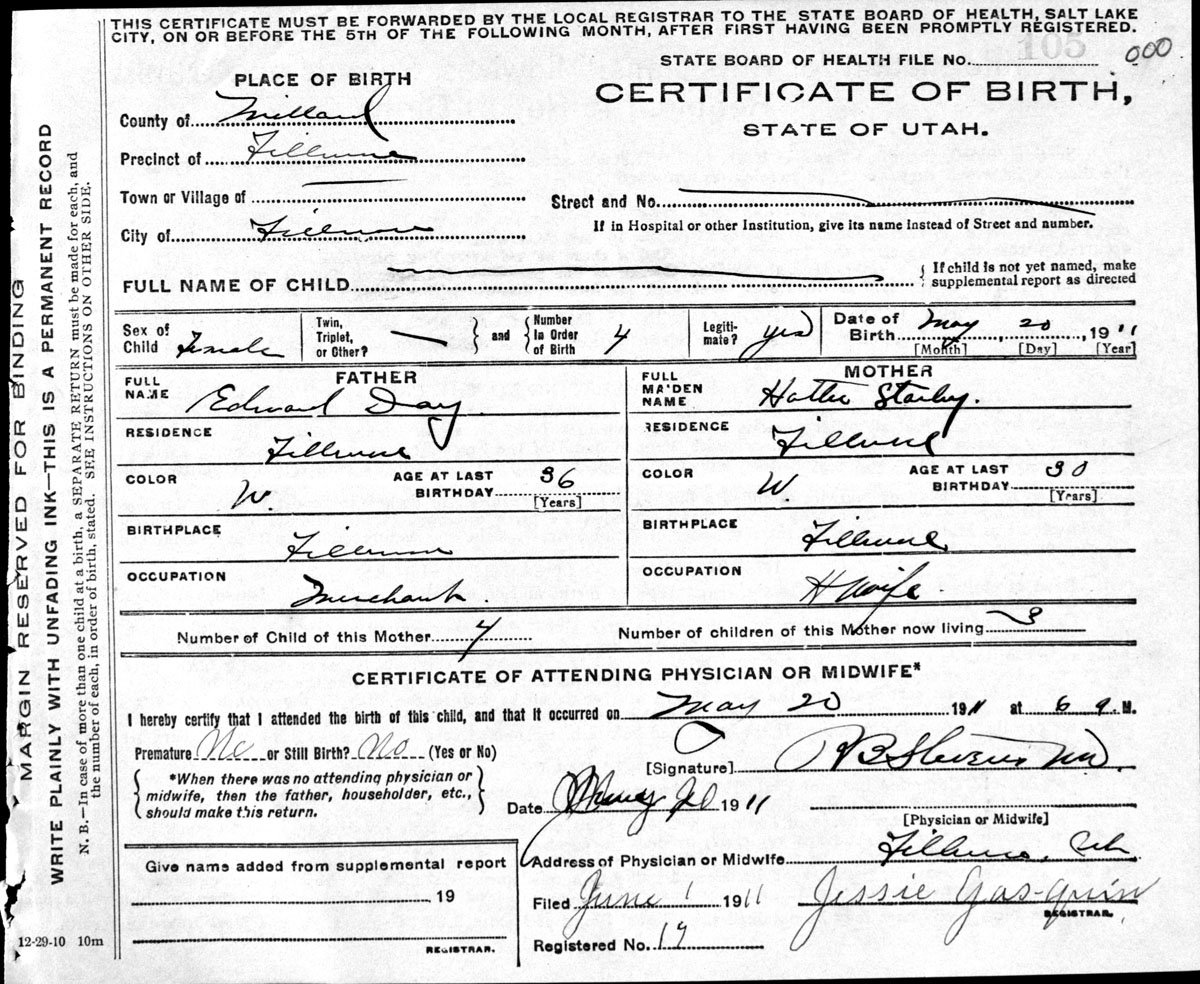 THIS CERTIFICATE MUST BE FORWARDED BY THE LOCAL REGISTRAR TO THE STATE BOARD OF HEALTH, SALT LAKE
CITY, ON OR BEFORE THE 5TH OF THE FOLLOWING MONTH, AFTER FIRST HAVING BEEN PROMPTLY REGISTERED.
STATE BOARD OF HEALTH FILE No. 105 000
PLACE OF BIRTH
CERTIFICATE OF BIRTH,
STATE OF UTAH.
County of Millard
Precinct of Fillmore
Town or Village of
Street and No.
City of Fillmore
If in Hospital or other Institution, give its name instead of Street and number.
FULL NAME OF CHILD
{ If child is not yet named, make
supplemental report as directed
Sex of Child Female
Twin, Triplet, or Other? — } and { Number In Order of Birth 4
Legiti-mate? yes
Date of Birth May 20, 1911
[Month] [Day] [Year]
FATHER
FULL NAME Edward Day.
RESIDENCE Fillmore
COLOR W. AGE AT LAST BIRTHDAY 36 [Years]
BIRTHPLACE Fillmore
OCCUPATION Merchant.
MOTHER
FULL MAIDEN NAME Hattie
RESIDENCE Fillmore
COLOR W AGE AT LAST BIRTHDAY 30 [Years]
BIRTHPLACE Fillmore
OCCUPATION H wife
Number of Child of this Mother 4 Number of children of this Mother now living 3
CERTIFICATE OF ATTENDING PHYSICIAN OR MIDWIFE*
I hereby certify that I attended the birth of this child, and that it occurred on May 20 1911 at 6 a. M.
Premature No or Still Birth? No (Yes or No)
[Signature] Stevens MD.
{ *When there was no attending physician or
midwife, then the father, householder, etc.,
should make this return. }
Date 1911
[Physician or Midwife]
Address of Physician or Midwife Fillmore,
Give name added from supplemental report
19
REGISTRAR.
Filed June 1 1911 Jessie
REGISTRAR.
Registered No. 17
12-29-10 10m
MARGIN RESERVED FOR BINDING
WRITE PLAINLY WITH UNFADING INK—THIS IS A PERMANENT RECORD
N. B.—In case of more than one child at a birth, a SEPARATE RETURN must be made for each, and
the number of each, in order of birth, stated. SEE INSTRUCTIONS ON OTHER SIDE.